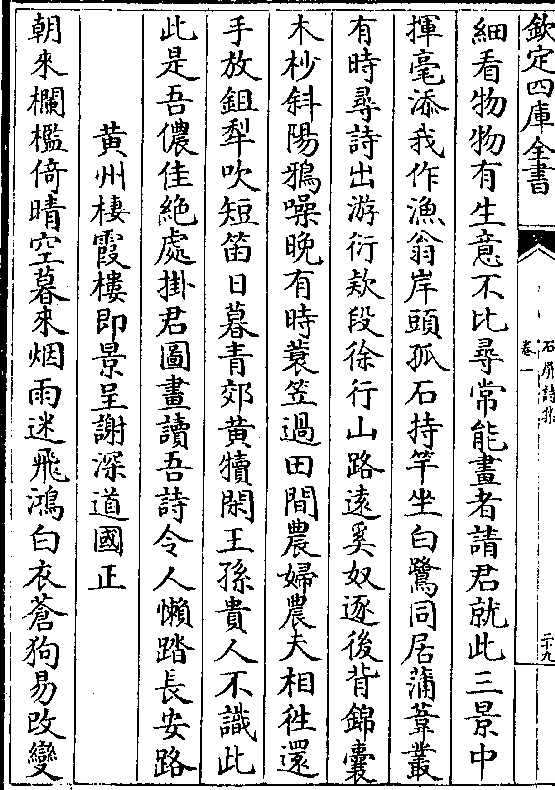 欽定四庫全書
石屏詩集
卷一
二十九
細看物物有生意不比尋常能畫者請君就此三景中
揮毫添我作漁翁岸頭孤石持竿坐白鷺同居蒲葦叢
有時尋詩出游衍欵段徐行山路遠奚奴逐後背錦囊
木杪斜陽鴉噪晚有時蓑笠過田間農婦農夫相徃還
手放鉏犁吹短笛日暮青郊黄犢閑王孫貴人不識此
此是吾儂佳絶處掛君圖畫讀吾詩令人懶踏長安路
黄州棲霞樓即景呈謝深道國正
朝來欄檻倚晴空暮來烟雨迷飛鴻白衣蒼狗易改變